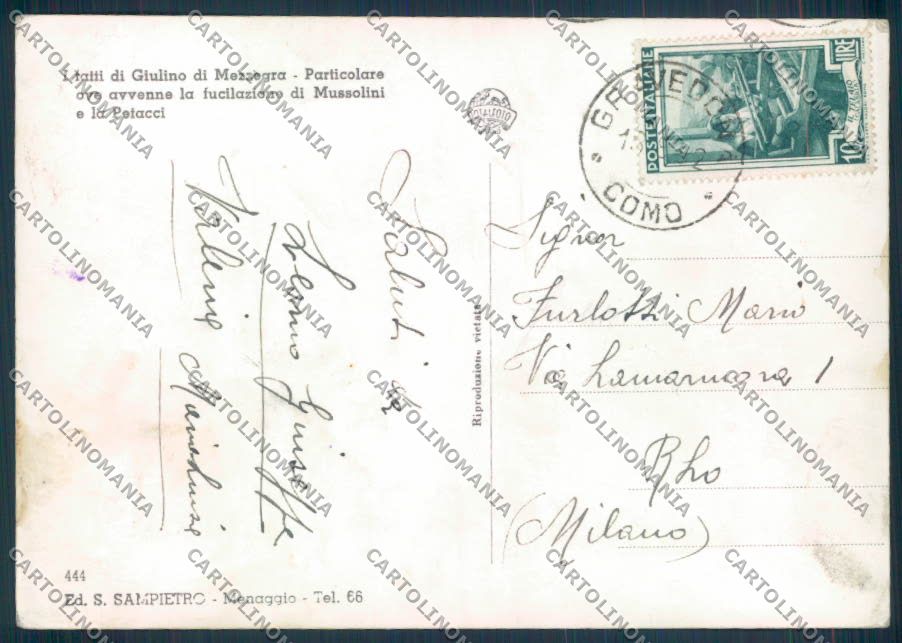 I fatti di Giulino di Mezzegra - Particolare
ove avvenne la fucilazione di Mussolini
e la Petacci
Saluti da
Giuseppe
Reproduzione vietata
POSTE ITALIANE
LIRE
10
GRAVEDONA
COMO
Signor
Furlotti Mario
Via Lamarmora 1
Rho
(Milano)
444
Ed. S. SAMPIETRO - Menaggio - Tel. 66
CARTOLINOMANIA